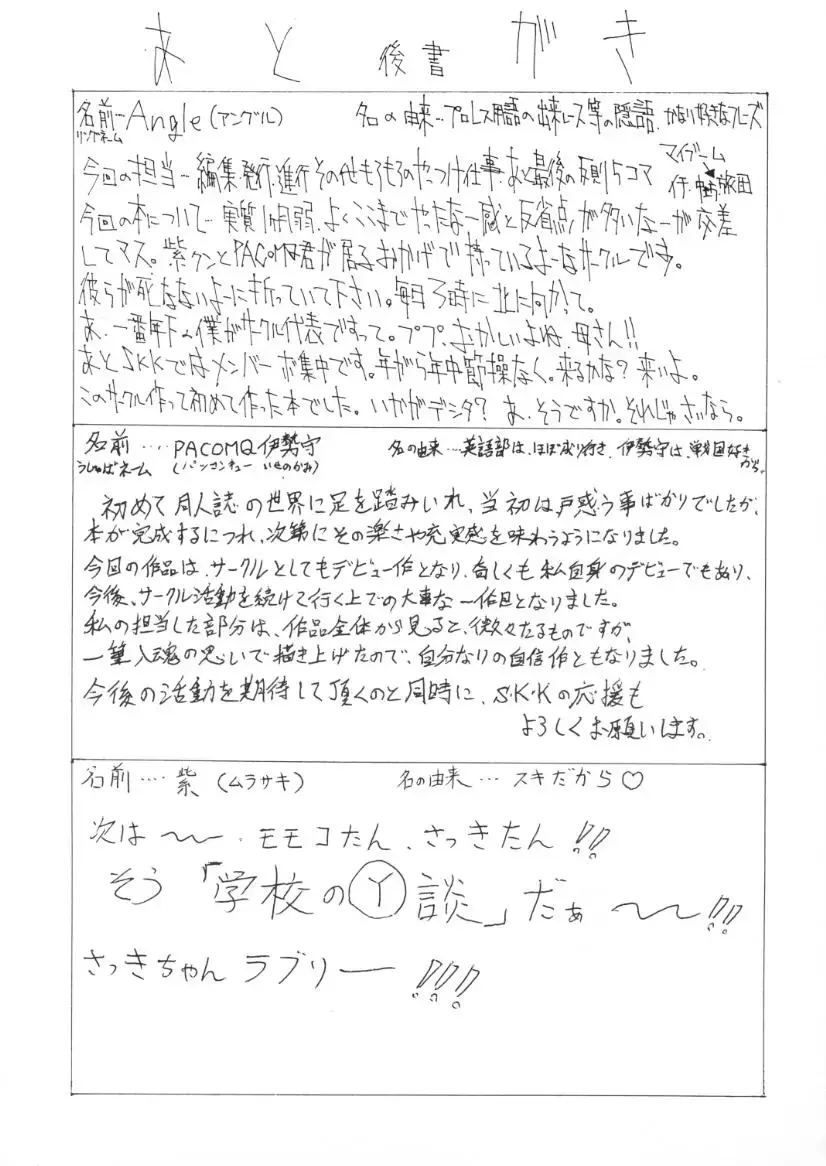 あとがき
後書
名前…Angle(アングル) 名の由来…プロレス用語の出来レース等の隠語、かなり好きなフレーズ
リングネーム
マイブーム
今回の担当…編集発行、進行その他もろもろのやっつけ仕事、あと最後の反則5コマ
今回の本について…実質1ヶ月弱、よくここまでやったなー感と反省点が多いなーが交差
してマス。紫クンとPACOMQ君が居るおかげで持っているよーなサークルです。
彼らが死なないよーに祈っていて下さい。毎日3時に北に向かって。
あ、一番年下の僕がサークル代表ですって。ププ、おかしいよね、母さん!!
あとSKKではメンバー募集中です。年がら年中節操なく。来るかな?来いよ。
このサークル作って初めて作った本でした。いかがデシタ?あ、そうですか。それじゃさいなら。
名前…PACOMQ伊勢守 名の由来…英語部は、ほぼ成り行き、伊勢守は、戦国好きから。
(パンコンキュー いせのかみ)
初めて同人誌の世界に足を踏みいれ、当初は戸惑う事ばかりでしたが、
本が完成するにつれ、次第にその楽さや充実感を味わうようになりました。
今回の作品は、サークルとしてもデビュー作となり、奇しくも私自身のデビューでもあり、
今後、サークル活動を続けて行く上での大事な一作目となりました。
私の担当した部分は、作品全体から見ると、微々たるものですが、
一筆入魂の思いで描き上げたので、自分なりの自信作ともなりました。
今後の活動を期待して頂くのと同時に、S・K・Kの応援も
よろしくお願いします。
名前…紫(ムラサキ) 名の由来…スキだから♡
次は〜〜、モモコたん、さっきたん!!
そう「学校のⓎ談」だぁ〜〜!!
さっきちゃんラブリー!!!